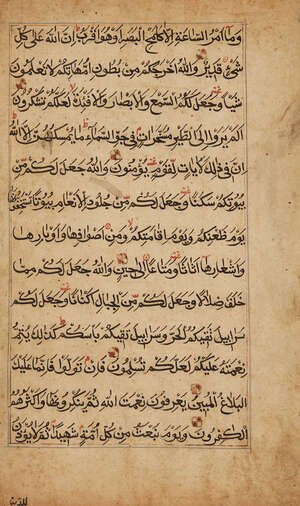 وما امر الساعة الا كلمح البصر او هو اقرب ان الله على كل
شىء قدير والله اخرجكم من بطون امهاتكم لا تعلمون
شيا وجعل لكم السمع والابصار والافئدة لعلكم تشكرون
الم يروا الى الطير مسخرات في جو السماء ما يمسكهن الا الله
ان في ذلك لايات لقوم يؤمنون والله جعل لكم من
بيوتكم سكنا وجعل لكم من جلود الانعام بيوتا تستخفونها
يوم ظعنكم ويوم اقامتكم ومن اصوافها واوبارها
واشعارها اثاثا ومتاعا الى حين والله جعل لكم مما
خلق ضلالا وجعل لكم من الجبال اكنانا وجعل لكم
سرابيل تقيكم الحر وسرابيل تقيكم باسكم كذلك يتم
نعمته عليكم لعلكم تسلمون فان تولوا فانما عليك
البلاغ المبين يعرفون نعمت الله ثم ينكرونها واكثرهم
الكفرون ويوم نبعث من كل امة شهيدا ثم لا يؤذن
للذين